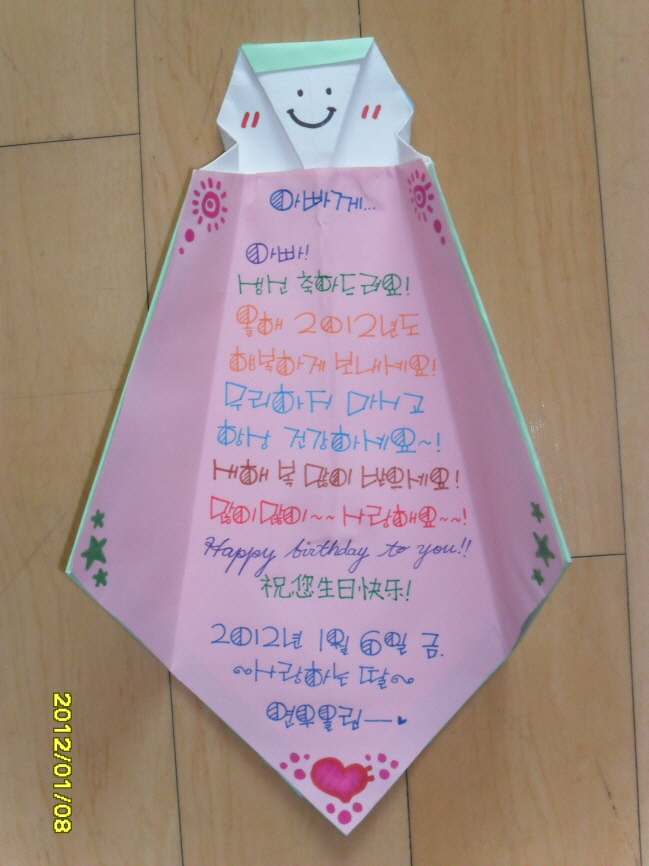 아빠께...
아빠!
생신 축하드려요!
올해 2012년도
행복하게 보내세요!
무리하지 마시고
항상 건강하세요~!
새해 복 많이 받으세요!
많이많이~~ 사랑해요~~!
Happy birthday to you!!
祝您生日快乐!
2012년 1월 6일 금.
~사랑하는 딸~
2012/01/08